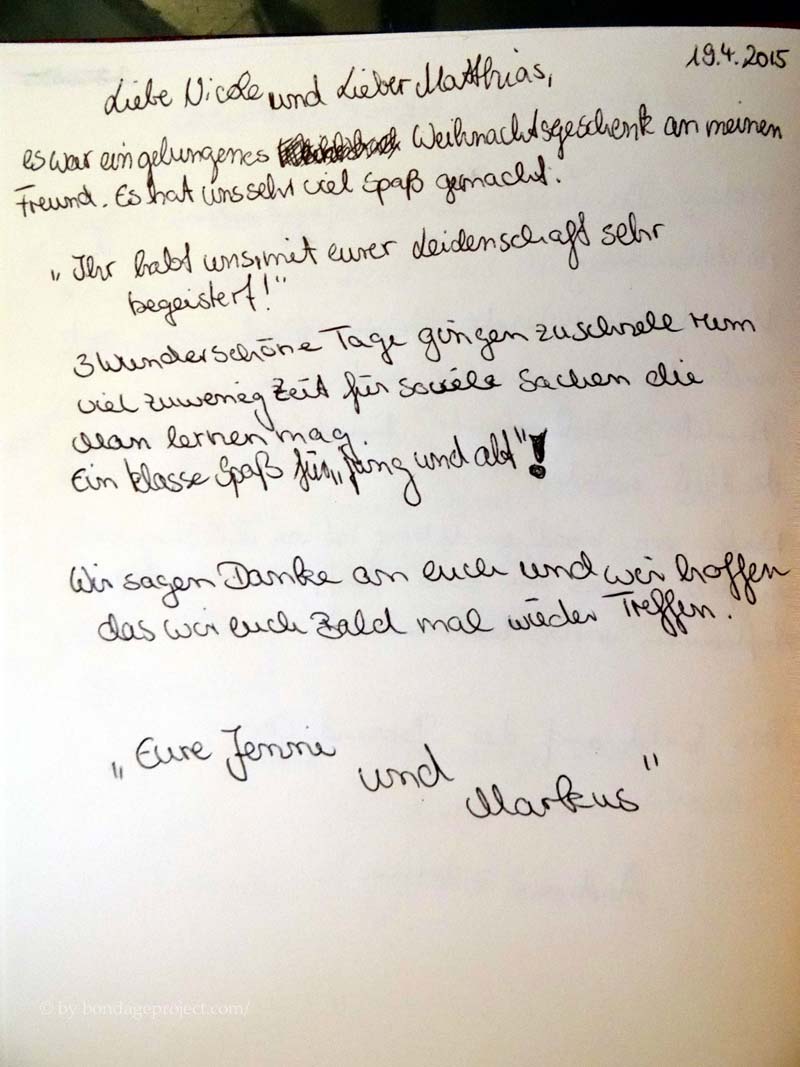 19.4.2015
Liebe Nicole und Lieber Matthias,
es war ein gelungenes Weihnachtsgeschenk an meinen
Freund. Es hat uns sehr viel Spaß gemacht.
„Ihr habt uns, mit eurer Leidenschaft sehr
begeistert!"
3 Wunderschöne Tage gingen zu schnell rum
viel zuwenig Zeit für soviele Sachen die
Man lernen mag.
Ein klasse Spaß für „Jung und alt"!
Wir sagen Danke an euch und wir hoffen
das wir euch Bald mal wieder Treffen.
„Eure Jennie
und
Markus"
© by bondageproject.com/